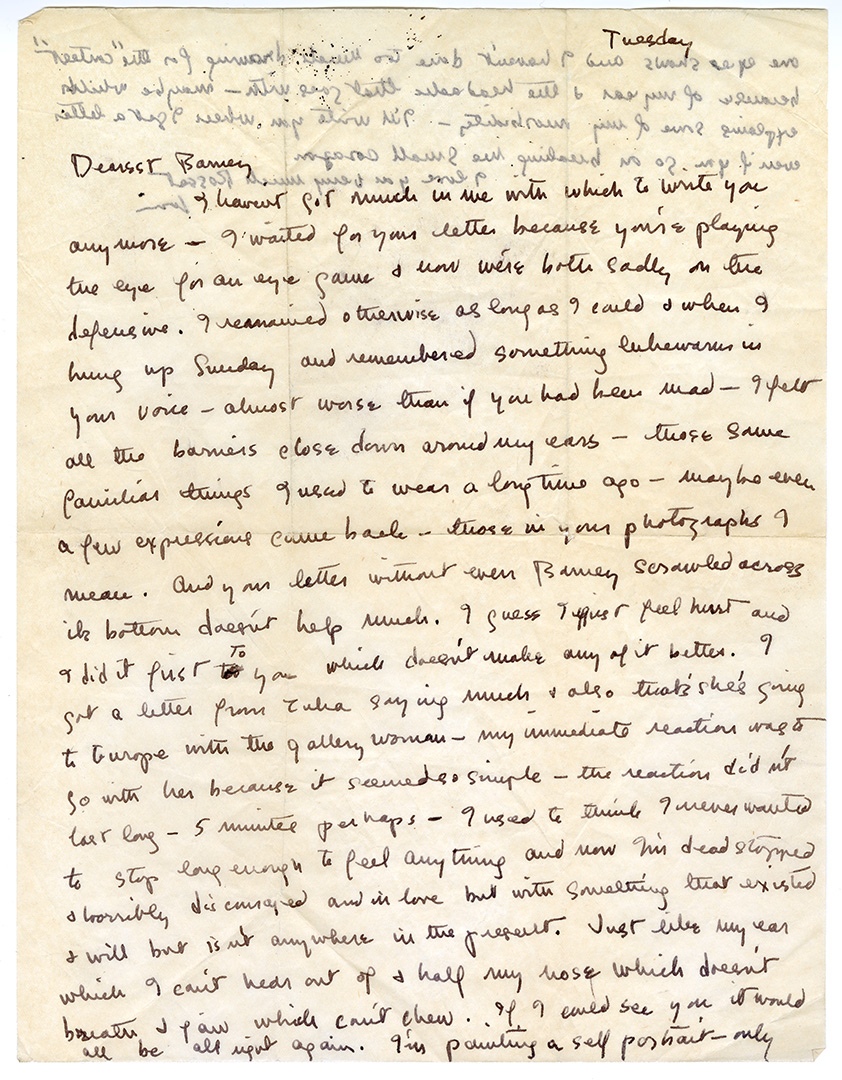 Tuesday
Dearsst Barney
I havent got much in me with which to write you
anymore — I waited for your letter because you're playing
the eye for an eye game & now we're both sadly on the
defensive. I remained otherwise as long as I could & when I
hung up Sunday and remembered something lukewarm in
your voice — almost worse than if you had been mad — I felt
all the barriers close down around my ears — those same
familiar things I used to wear a long time ago — maybe even
a few expressions came back — those in your photographs I
mean. And your letter without even Barney scrawled across
its bottom doesn't help much. I guess I just feel hurt and
I did it first to you which doesn't make any of it better. I
got a letter from Zuka saying much & also that she's going
to Europe with the gallery woman — my immediate reaction was to
go with her because it seemed so simple — the reaction did'nt
last long — 5 minutes perhaps — I used to think I never wanted
to stop long enough to feel anything and now I'm dead stopped
& horribly discouraged and in love but with something that existed
& will but is'nt anywhere in the present. Just like my ear
which I can't hear out of & half my nose which doesn't
breath & jaw which can't chew. If I could see you it would
all be all right again. I'm painting a self portrait — only
one eye shows and I haven't done too much drawing for the "contest"
because of my ear & the headache that goes with — maybe which
explains some of my morbidity — I'll write you when I get a letter
even if you go on breaking the small corazon
I love you very much Rosset
Joan